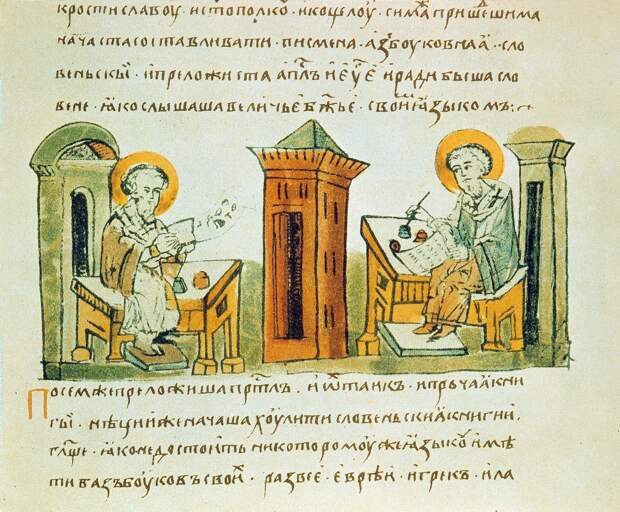 к ростиславоу · и стополко · и коцелоу · сима пришєшима
нача ста составливати · писмена · азбоуковнаꙗ · сло
веньскы · и преложиста апⷭлъ и еуⷢе и ради быша сло
вене · ꙗко слышаша величье бж҃ье · своимь ꙗзыкомъ :·
По сем же преложиша пртлъ · и ѡтаикъ · и прочаꙗ кни
гы · нѣции же начаша хоулити словеньскиꙗ книги и
гл҃ще · ꙗко не достоить никоторомоу же ꙗзыкоу имѣ
ти вазъбоуковъ своихъ · развее · евреи · и грекъ · и ла